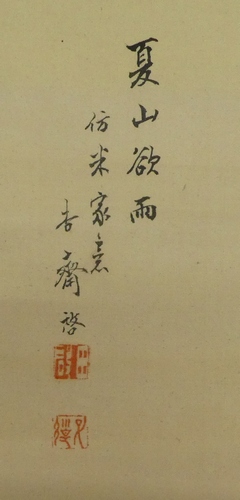 夏山欲雨
仿米家意
杏齋啓